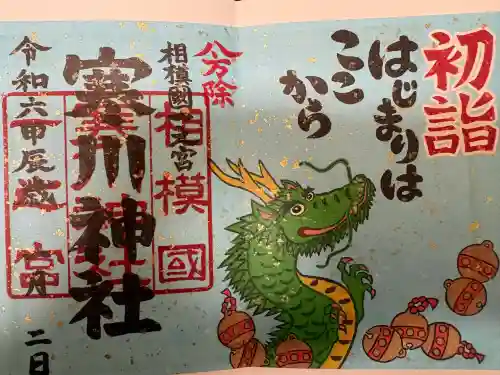 初詣
はじまりは
ここから
八方除
相模國一之宮
寒川神社
令和六甲辰歳 一月二日
相模國